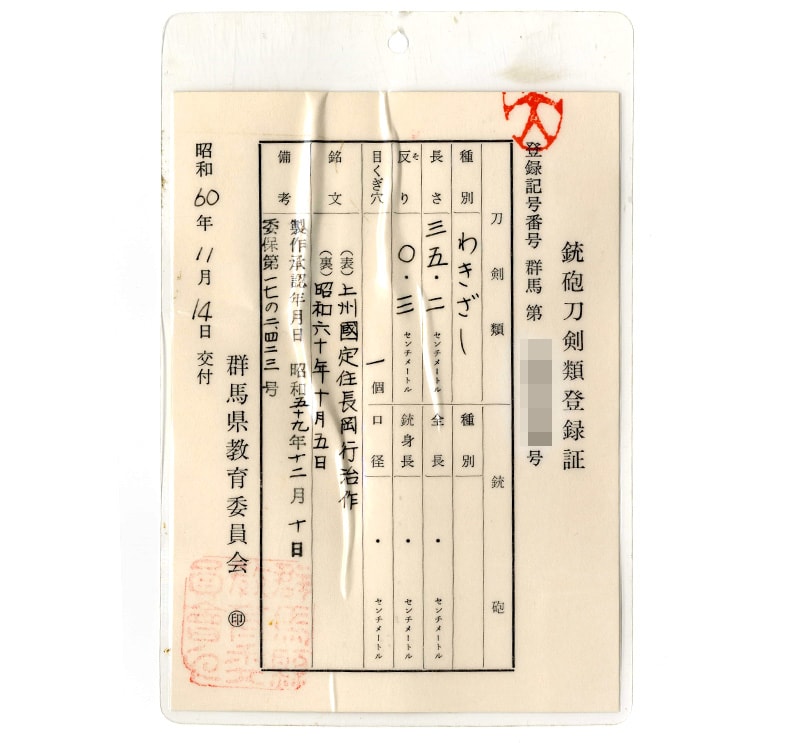 銃砲刀剣類登録証
登録記号番号 群馬 第 号
刀剣類
銃砲
種別 わきざし
種別
長さ 三五・二 センチメートル
全長 ・ センチメートル
反り 〇・三 センチメートル
そ
銃身長 ・ センチメートル
目くぎ穴 一個
口径 ・ センチメートル
銘文
(表)上州國定住長岡行治作
(裏)昭和六十年十月五日
備考
製作承認年月日 昭和五十九年十二月十日
委保第一七の二、四二三号
昭和60年11月14日交付
群馬県教育委員会 ㊞